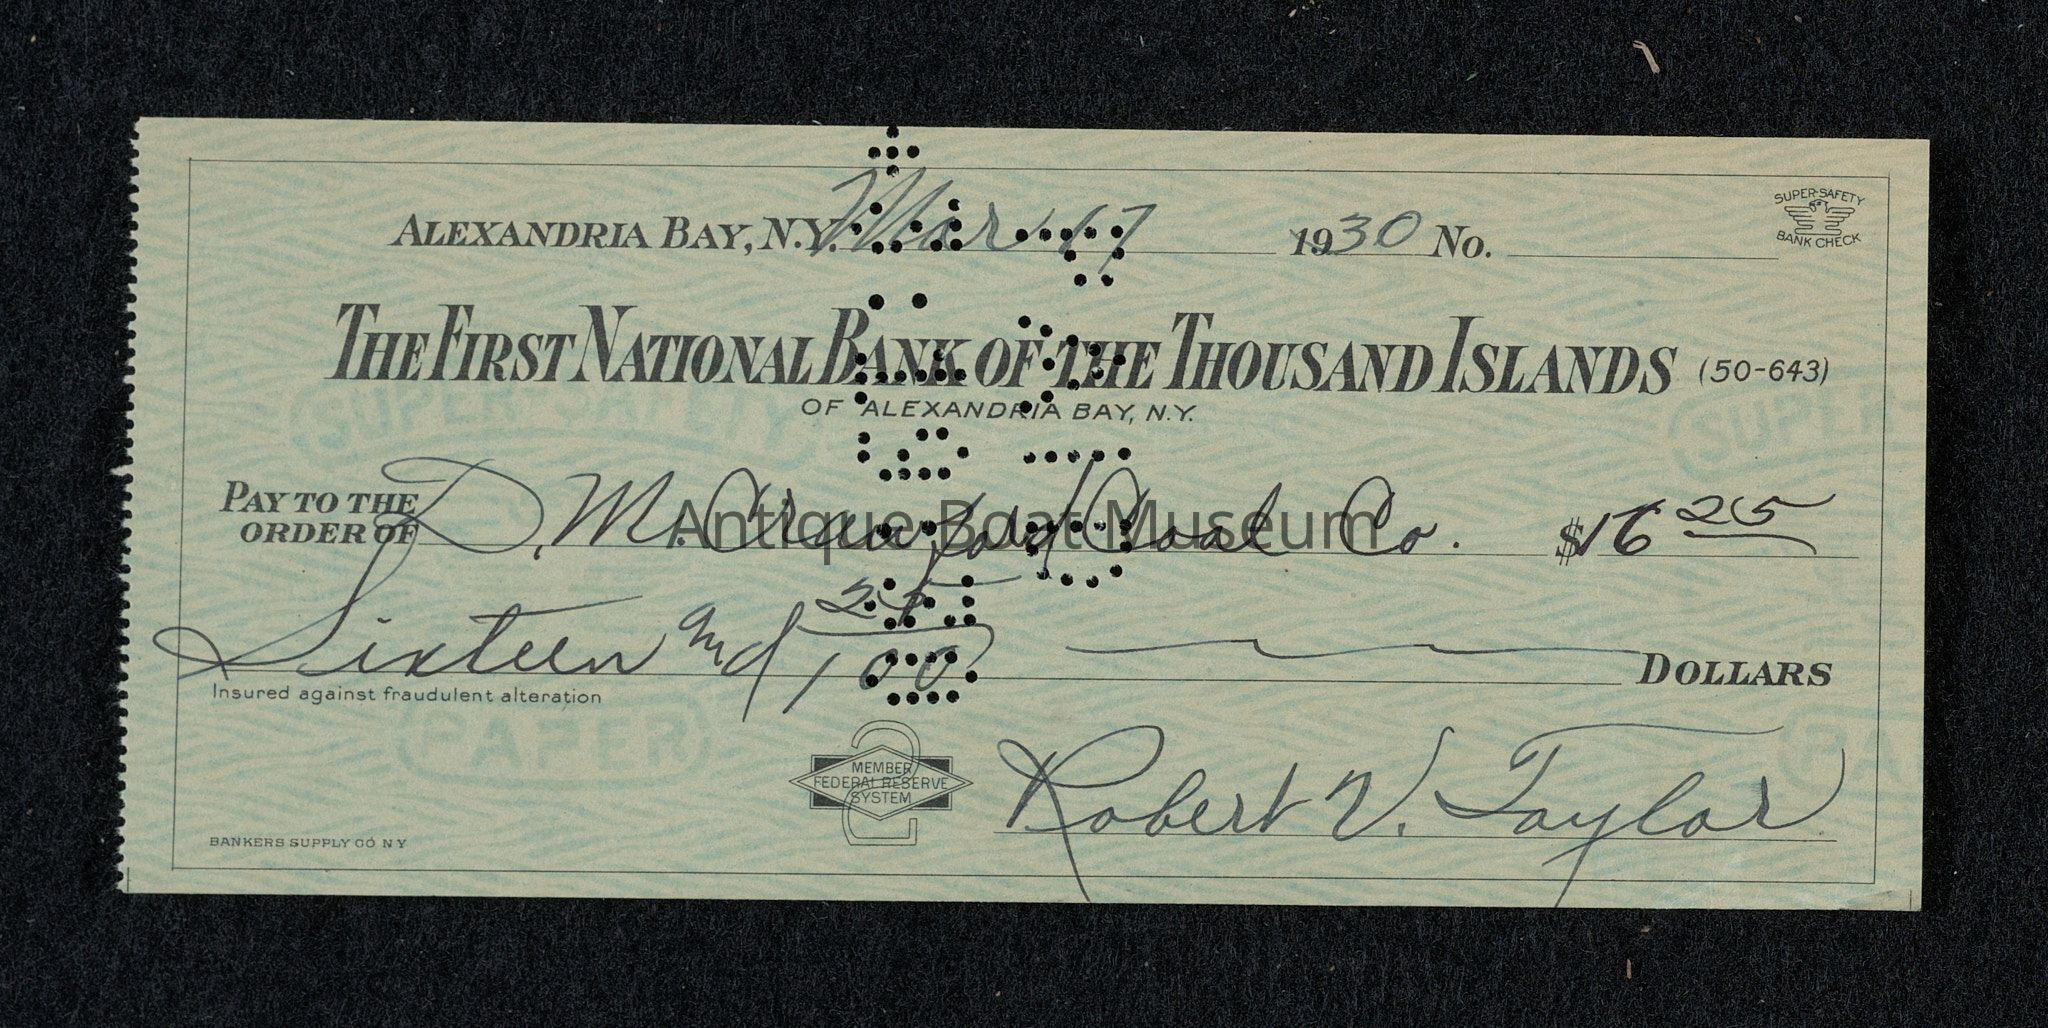 ALEXANDRIA BAY, N.Y. Mar 17 1930 No.
SUPER-SAFETY
BANK CHECK
THE FIRST NATIONAL BANK OF THE THOUSAND ISLANDS (50-643)
OF ALEXANDRIA BAY, N.Y.
SUPER-SAFETY SUPER
PAY TO THE
ORDER OF D. M. Crawford Coal Co. $16 25
Antique Boat Museum
Sixteen and 25/100 DOLLARS
Insured against fraudulent alteration
PAPER PA
MEMBER
FEDERAL RESERVE
SYSTEM
Robert V. Taylor
BANKERS SUPPLY CO N Y